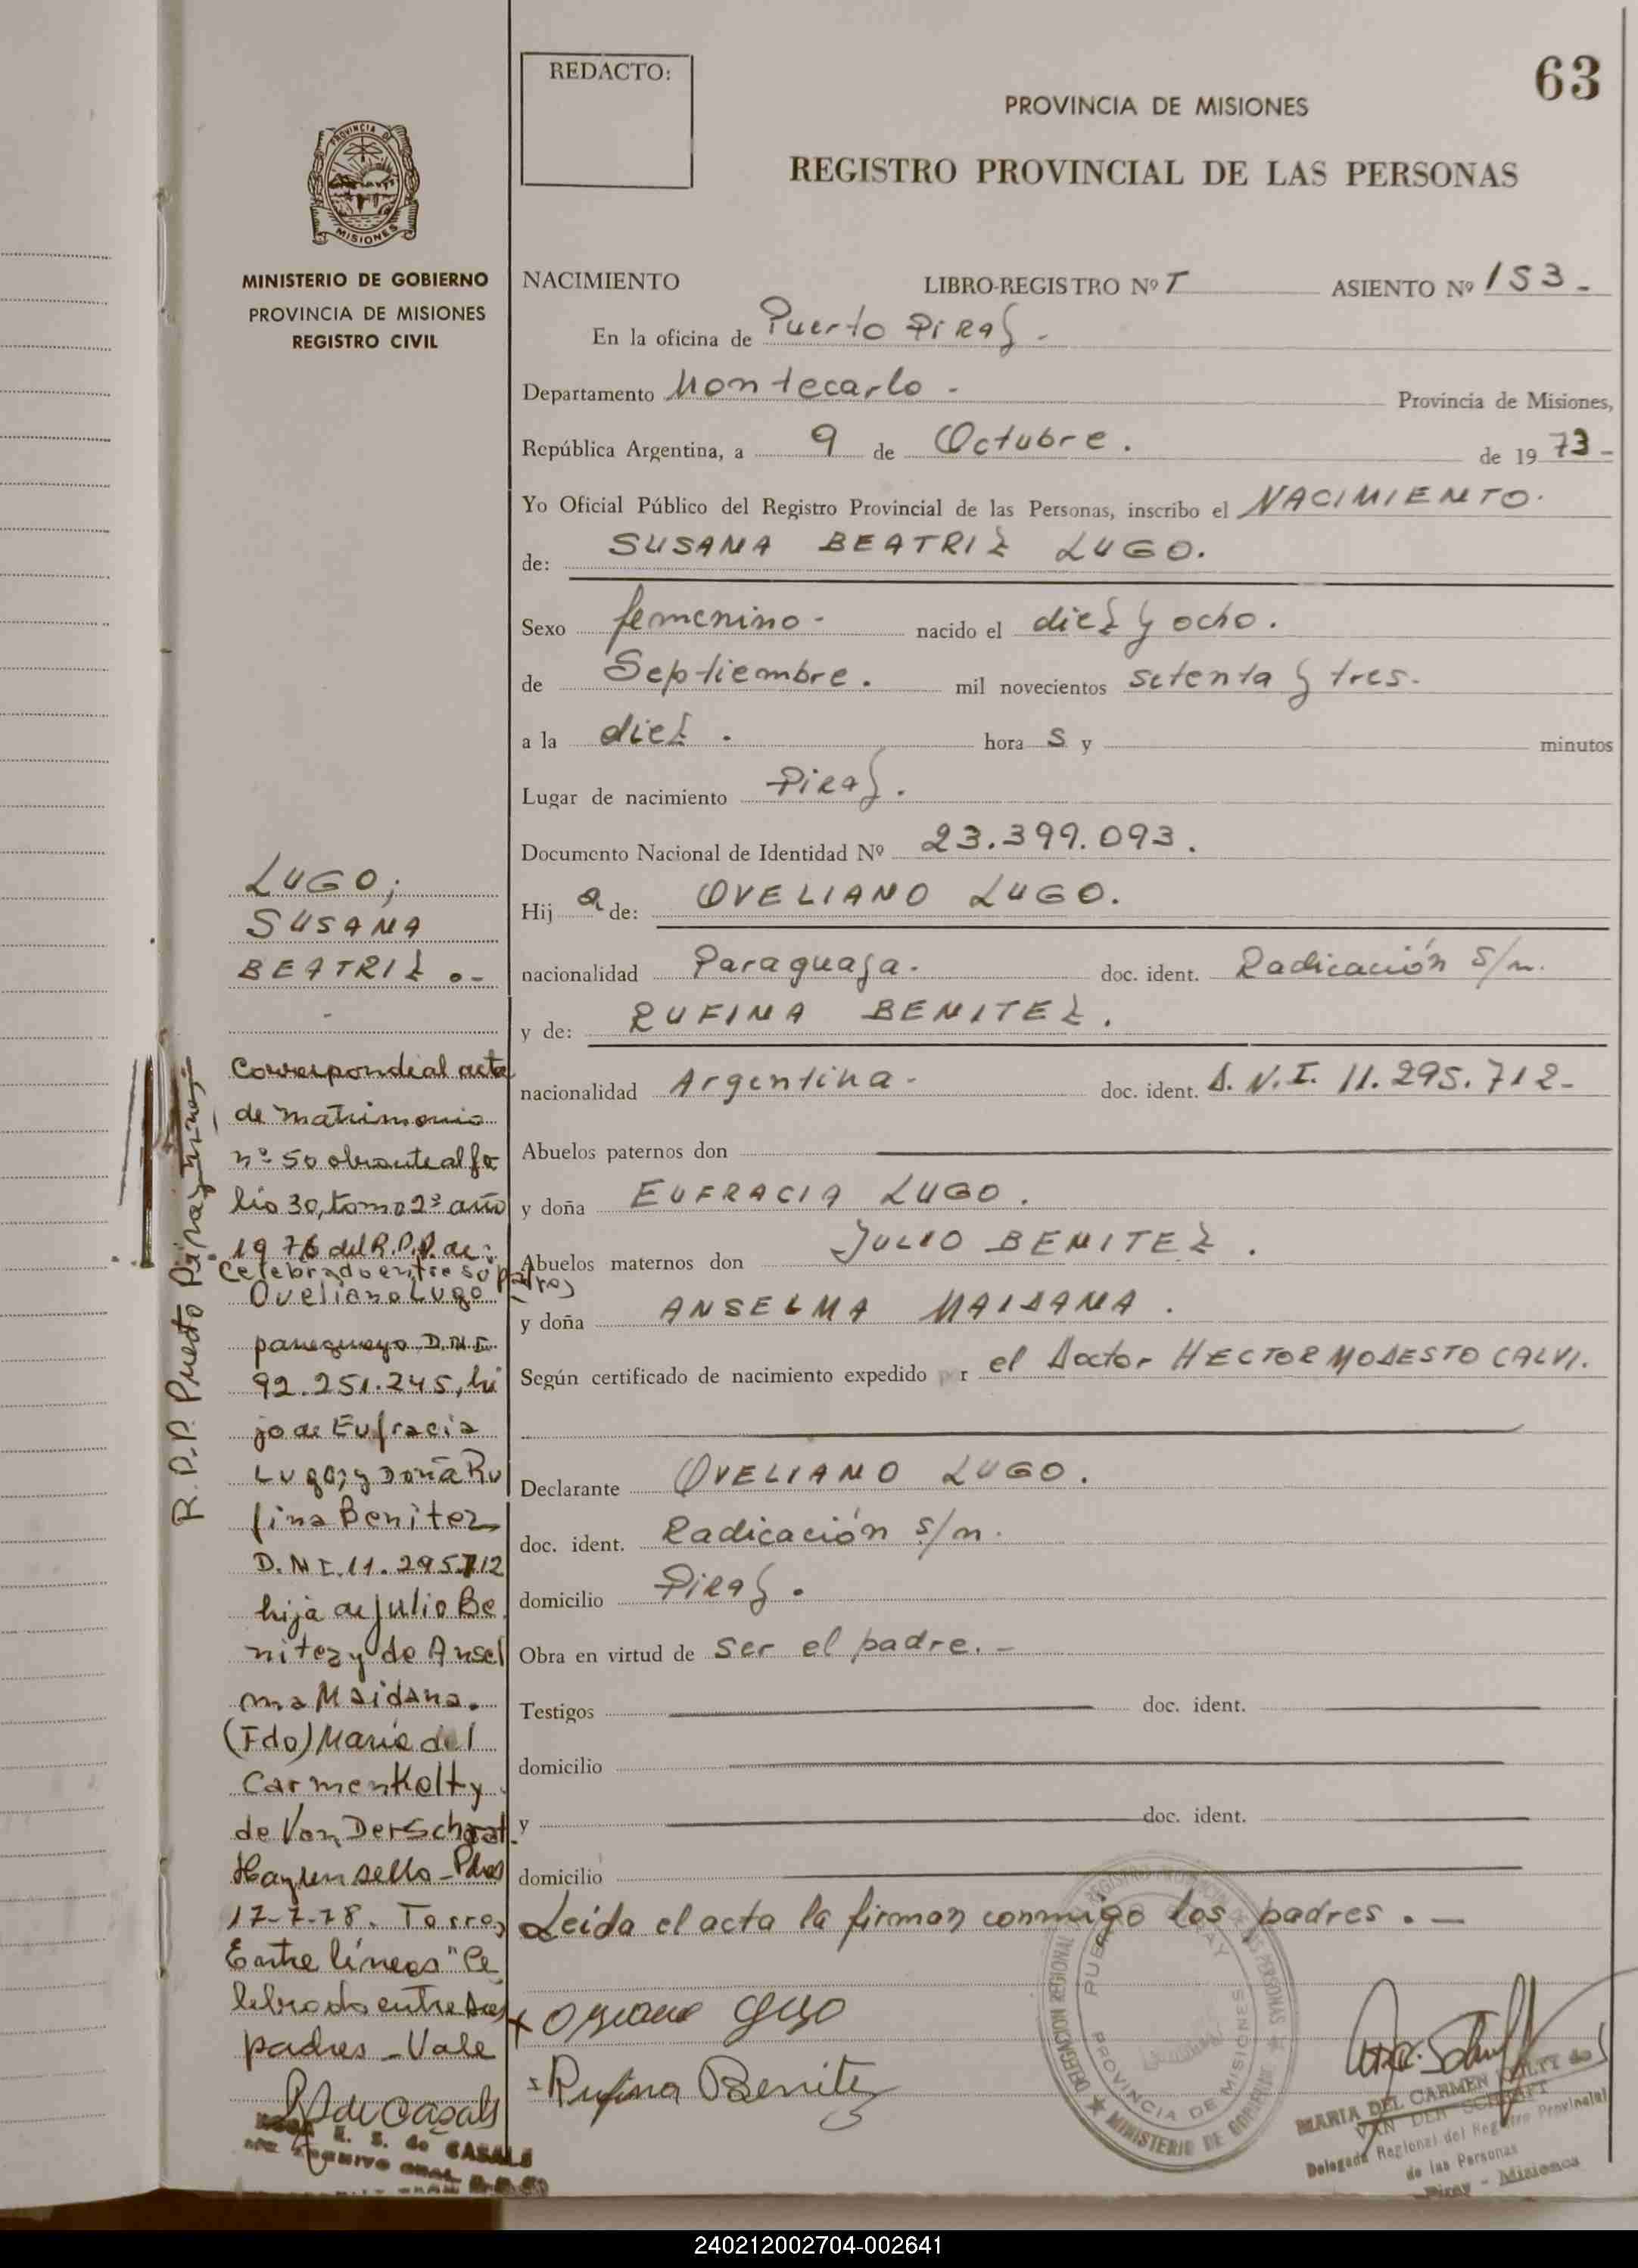 63
REDACTO:
PROVINCIA DE MISIONES
REGISTRO PROVINCIAL DE LAS PERSONAS
PROVINCIA DE
MISIONES
MINISTERIO DE GOBIERNO
PROVINCIA DE MISIONES
REGISTRO CIVIL
NACIMIENTO LIBRO-REGISTRO Nº T ASIENTO Nº 153.-
En la oficina de Puerto Piray -
Departamento Montecarlo - Provincia de Misiones,
República Argentina, a 9 de Octubre. de 19 73-
Yo Oficial Público del Registro Provincial de las Personas, inscribo el NACIMIENTO.
de: SUSANA BEATRIZ LUGO.
Sexo femenino - nacido el diez y ocho.
de Septiembre. mil novecientos setenta y tres.
a la diez. hora s y minutos
Lugar de nacimiento Piray.
Documento Nacional de Identidad Nº 23.399.093.
Hij a de: OVELIANO LUGO.
nacionalidad Paraguaya. doc. ident. Radicación s/n.
y de: RUFINA BENITEZ.
nacionalidad Argentina - doc. ident. D.N.I. 11.295.712-
Abuelos paternos don
y doña EUFRACIA LUGO.
Abuelos maternos don JULIO BENITEZ.
y doña ANSELMA MAIDANA.
Según certificado de nacimiento expedido por el Doctor HECTOR MODESTO CALVI.
Declarante OVELIANO LUGO.
doc. ident. Radicación s/n.
domicilio Piray.
Obra en virtud de ser el padre. -
Testigos doc. ident.
domicilio
y doc. ident.
domicilio
Leida el acta la firman conmigo los padres. -
Rufina Benitez
LUGO;
SUSANA
BEATRIZ .-
Correspondial acta
de matrimonio
nº 50 obrante al fo
lio 30, tomo 2º año
1976 del R.P.P. de
Celebrado entre sus padres
Oveliano Lugo
paraguayo D.N.I.
92.251.245, hi
jo de Eufracia
Lugo; y Doña Ru
fina Benitez
D.N.I. 11.295.712
hija de Julio Be
nitez y de Ansel
ma Maidana.
(Fdo) Maria del
Carmen Kelty
de Von Der Schraft.
Hay un sello - Pdas
17-7-78. Torres
Entre líneas "Ce
lebrado entre sus
padres - Vale
de Casals
E. S. de CASALS
R.P.P. Puerto Piray
DELEGACION REGIONAL REGISTRO PROVINCIAL DE LAS PERSONAS
MINISTERIO DE GOBIERNO
PUERTO PIRAY
PROVINCIA DE MISIONES
MARIA DEL CARMEN KELTY de
VAN DER SCHRAFT
Delegada Regional del Registro Provincial
de las Personas
Piray - Misiones
240212002704-002641